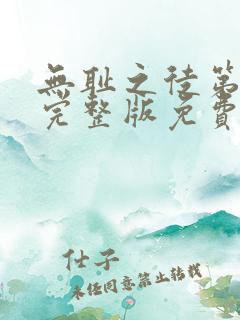 無耻之徒第
完整版免費
仕子
未经同意禁止转载